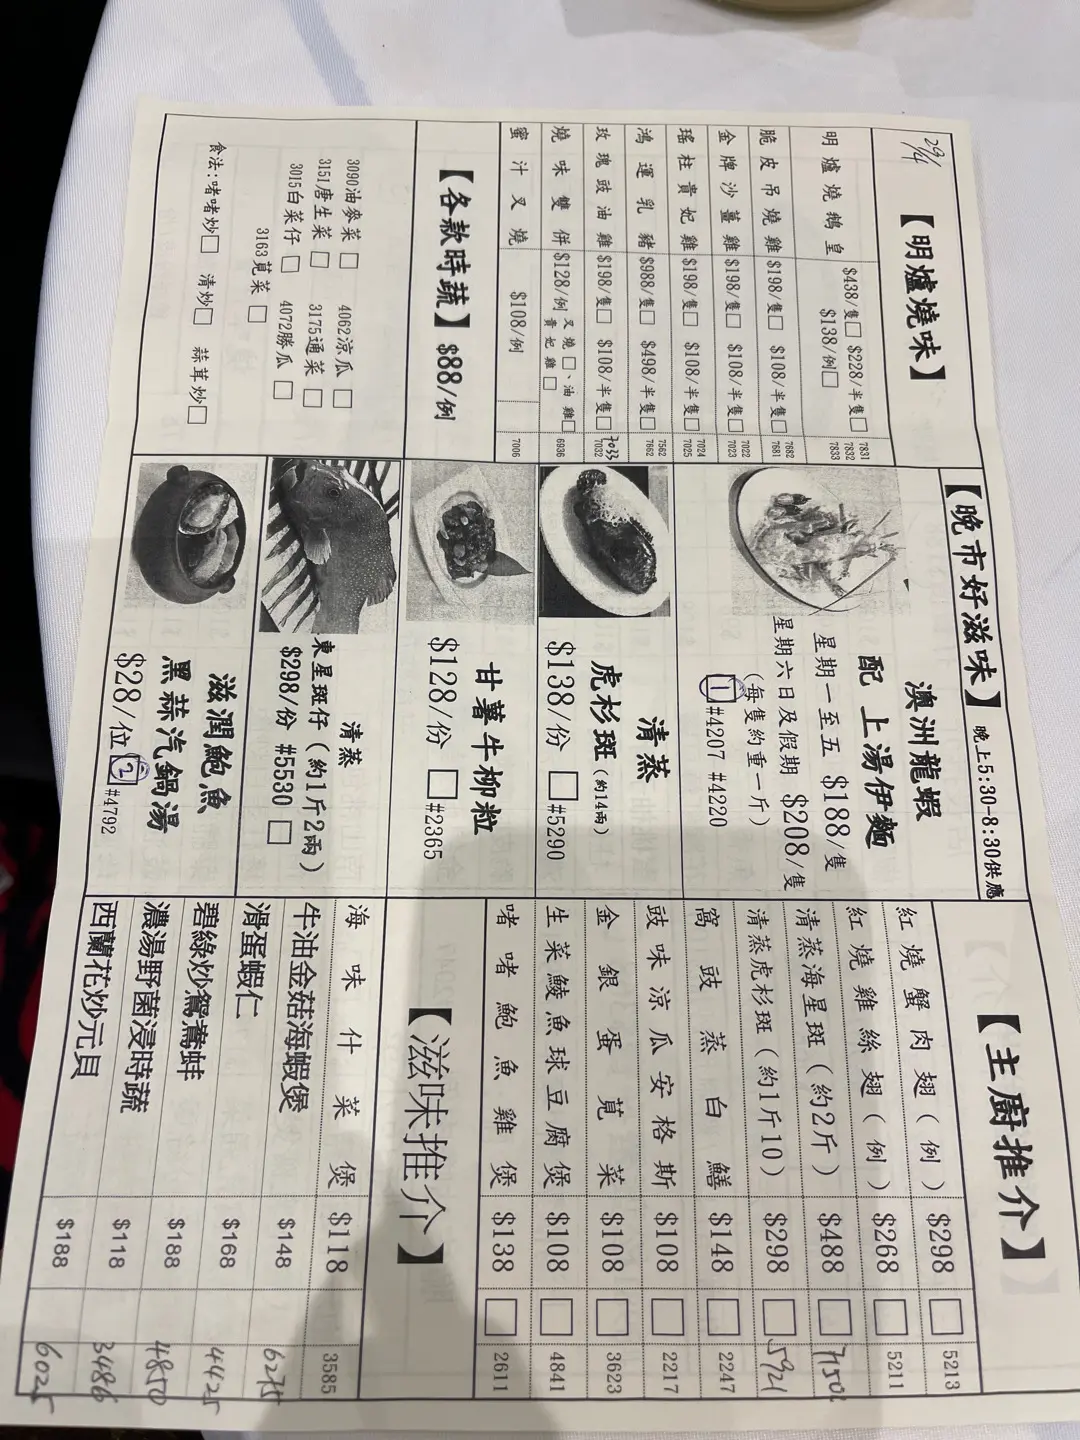 29/4
【明爐燒味】
明爐燒鵝皇 $438/隻□ $228/半隻□ 7831 7832
$138/例□ 7833
脆皮吊燒雞 $198/隻□ $108/半隻□ 7682 7681
金牌沙薑雞 $198/隻□ $108/半隻□ 7022 7023
瑤柱貴妃雞 $198/隻□ $108/半隻□ 7024 7025
鴻運乳豬 $988/隻□ $498/半隻□ 7562 7662
玫瑰豉油雞 $198/隻□ $108/半隻□ 7033 7032
燒味雙併 $128/例 叉燒□、油雞□ 6936
貴妃雞□
蜜汁叉燒 $108/例 7006
【各款時蔬】$88/例
3090油麥菜□ 4062涼瓜□
3151唐生菜□ 3175通菜□
3015白菜仔□ 4072勝瓜□
3163莧菜□
食法:啫啫炒□ 清炒□ 蒜茸炒□
【晚市好滋味】晚上5:30-8:30供應
澳洲龍蝦
配 上湯伊麵
星期一至五 $188/隻
星期六日及假期 $208/隻
(每隻約重一斤)
1 #4207 #4220
清蒸
虎杉斑(約14兩)
$138/份 □#5290
甘薯牛柳粒
$128/份 □#2365
清蒸
東星斑仔(約1斤2兩)
$298/份 #5530 □
滋潤鮑魚
黑蒜汽鍋湯
$28/位 2 #4792
【主廚推介】
紅燒蟹肉翅(例) $298 □ 5213
紅燒雞絲翅(例) $268 □ 5211
清蒸海星斑(約2斤) $488 □
清蒸虎杉斑(約1斤10) $298 □ 5921
窩豉蒸白鱔 $148 □ 2247
豉味涼瓜安格斯 $108 □ 2217
金銀蛋莧菜 $108 □ 3623
生菜鯪魚球豆腐煲 $108 □ 4841
啫啫鮑魚雞煲 $138 □ 2611
【滋味推介】
海味什菜煲 $118 3585
牛油金菇海蝦煲 $148 6275
滑蛋蝦仁 $168 4425
碧綠炒鴛鴦蚌 $188 4850
濃湯野菌浸時蔬 $118 3486
西蘭花炒元貝 $188 6025